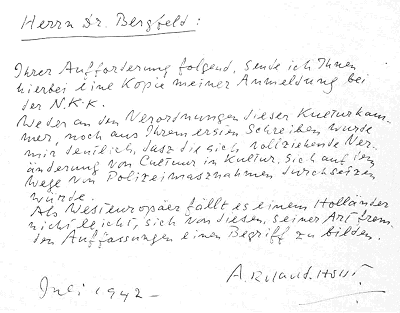 Herrn Dr. Bergfeld:
Ihrer Aufforderung folgend, sende ich Ihnen
hierbei eine Kopie meiner Anmeldung bei
der N.K.K.
Weder an den Verordnungen dieser Kulturkam-
mer, noch aus Ihrem ersten Schreiben wurde
mir deutlich, dasz die sich vollziehende Ver-
änderung von Cultur in Kultur, sich auf dem
Wege von Polizeimasznahmen durchsetzen
würde.
Als Westeuropäer fällt es einem Holländer
nicht leicht, sich von diesen, seiner Art frem-
den Auffassungen einen Begriff zu bilden.
A. Roland Holst
Juni 1942 –